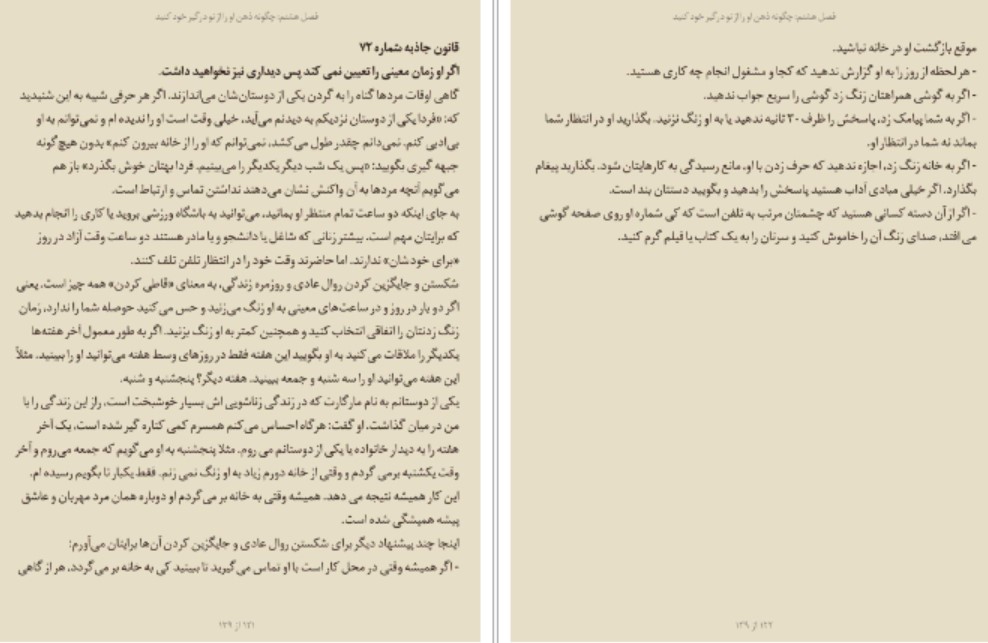 فصل هشتم: چگونه ذهن او را از تو درگیر خود کنید
قانون جاذبه شماره ۷۲
اگر او زمان معینی را تعیین نمی کند پس دیداری نیز نخواهید داشت.
گاهی اوقات مردها گناه را به گردن یکی از دوستان‌شان می‌اندازند. اگر هر حرفی شبیه به این شنیدید
که: «فردا یکی از دوستان نزدیکم به دیدنم می‌آید، خیلی وقت است او را ندیده ام و نمی‌توانم به او
بی‌ادبی کنم. نمی‌دانم چقدر طول می‌کشد، نمی‌توانم که او را از خانه بیرون کنم» بدون هیچ گونه
جبهه گیری بگویید: «پس یک شب دیگر یکدیگر را می‌بینیم. فردا بهتان خوش بگذرد» باز هم
می‌گویم آنچه مردها به آن واکنش نشان می‌دهند نداشتن تماس و ارتباط است.
به جای اینکه دو ساعت تمام منتظر او بمانید، می‌توانید به باشگاه ورزشی بروید یا کاری را انجام بدهید
که برایتان مهم است. بیشتر زنانی که شاغل یا دانشجو و یا مادر هستند دو ساعت وقت آزاد در روز
«برای خودشان» ندارند. اما حاضرند وقت خود را در انتظار تلفن تلف کنند.
شکستن و جایگزین کردن روال عادی و روزمره زندگی، به معنای «قاطی کردن» همه چیز است. یعنی
اگر دو بار در روز و در ساعت‌های معینی به او زنگ می‌زنید و حس می کنید حوصله شما را ندارد، زمان
زنگ زدنتان را اتفاقی انتخاب کنید و همچنین کمتر به او زنگ بزنید. اگر به طور معمول آخر هفته‌ها
یکدیگر را ملاقات می کنید به او بگویید این هفته فقط در روزهای وسط هفته می‌توانید او را ببینید. مثلاً
این هفته می‌توانید او را سه شنبه و جمعه ببینید. هفته دیگر؟ پنجشنبه و شنبه.
یکی از دوستانم به نام مارگارت که در زندگی زناشویی اش بسیار خوشبخت است، راز این زندگی را با
من در میان گذاشت. او گفت: هرگاه احساس می‌کنم همسرم کمی کناره گیر شده است، یک آخر
هفته را به دیدار خانواده یا یکی از دوستانم می روم. مثلا پنجشنبه به او می گویم که جمعه می‌روم و آخر
وقت یکشنبه برمی گردم و وقتی از خانه دورم زیاد به او زنگ نمی زنم. فقط یکبار تا بگویم رسیده ام.
این کار همیشه نتیجه می دهد. همیشه وقتی به خانه بر می‌گردم او دوباره همان مرد مهربان و عاشق
پیشه همیشگی شده است.
اینجا چند پیشنهاد دیگر برای شکستن روال عادی و جایگزین کردن آن‌ها برایتان می‌آورم:
- اگر همیشه وقتی در محل کار است با او تماس می گیرید تا ببینید کی به خانه بر می گردد، هر از گاهی
۱۲۱ از ۱۳۹
فصل هشتم: چگونه ذهن او را از تو درگیر خود کنید
موقع بازگشت او در خانه نباشید.
- هر لحظه از روز را به او گزارش ندهید که کجا و مشغول انجام چه کاری هستید.
- اگر به گوشی همراهتان زنگ زد گوشی را سریع جواب ندهید.
- اگر به شما پیامک زد، پاسخش را ظرف ۳۰ ثانیه ندهید یا به او زنگ نزنید. بگذارید او در انتظار شما
بماند نه شما در انتظار او.
- اگر به خانه زنگ زد، اجازه ندهید که حرف زدن با او، مانع رسیدگی به کارهایتان شود. بگذارید پیغام
بگذارد. اگر خیلی مبادی آداب هستید پاسخش را بدهید و بگویید دستتان بند است.
- اگر از آن دسته کسانی هستید که چشمتان مرتب به تلفن است که کی شماره او روی صفحه گوشی
می افتد، صدای زنگ آن را خاموش کنید و سرتان را به یک کتاب یا فیلم گرم کنید.
۱۲۲ از ۱۳۹